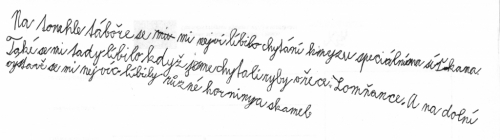 Na tomhle táboře se mi nejvíc líbilo chytání hmyzu speciálníma síťkama.
Také se mi tady líbilo když jsme chytali ryby v řece Lomňance. A na dolní
výstavě se mi nejvíc líbily různé horniny a skameb